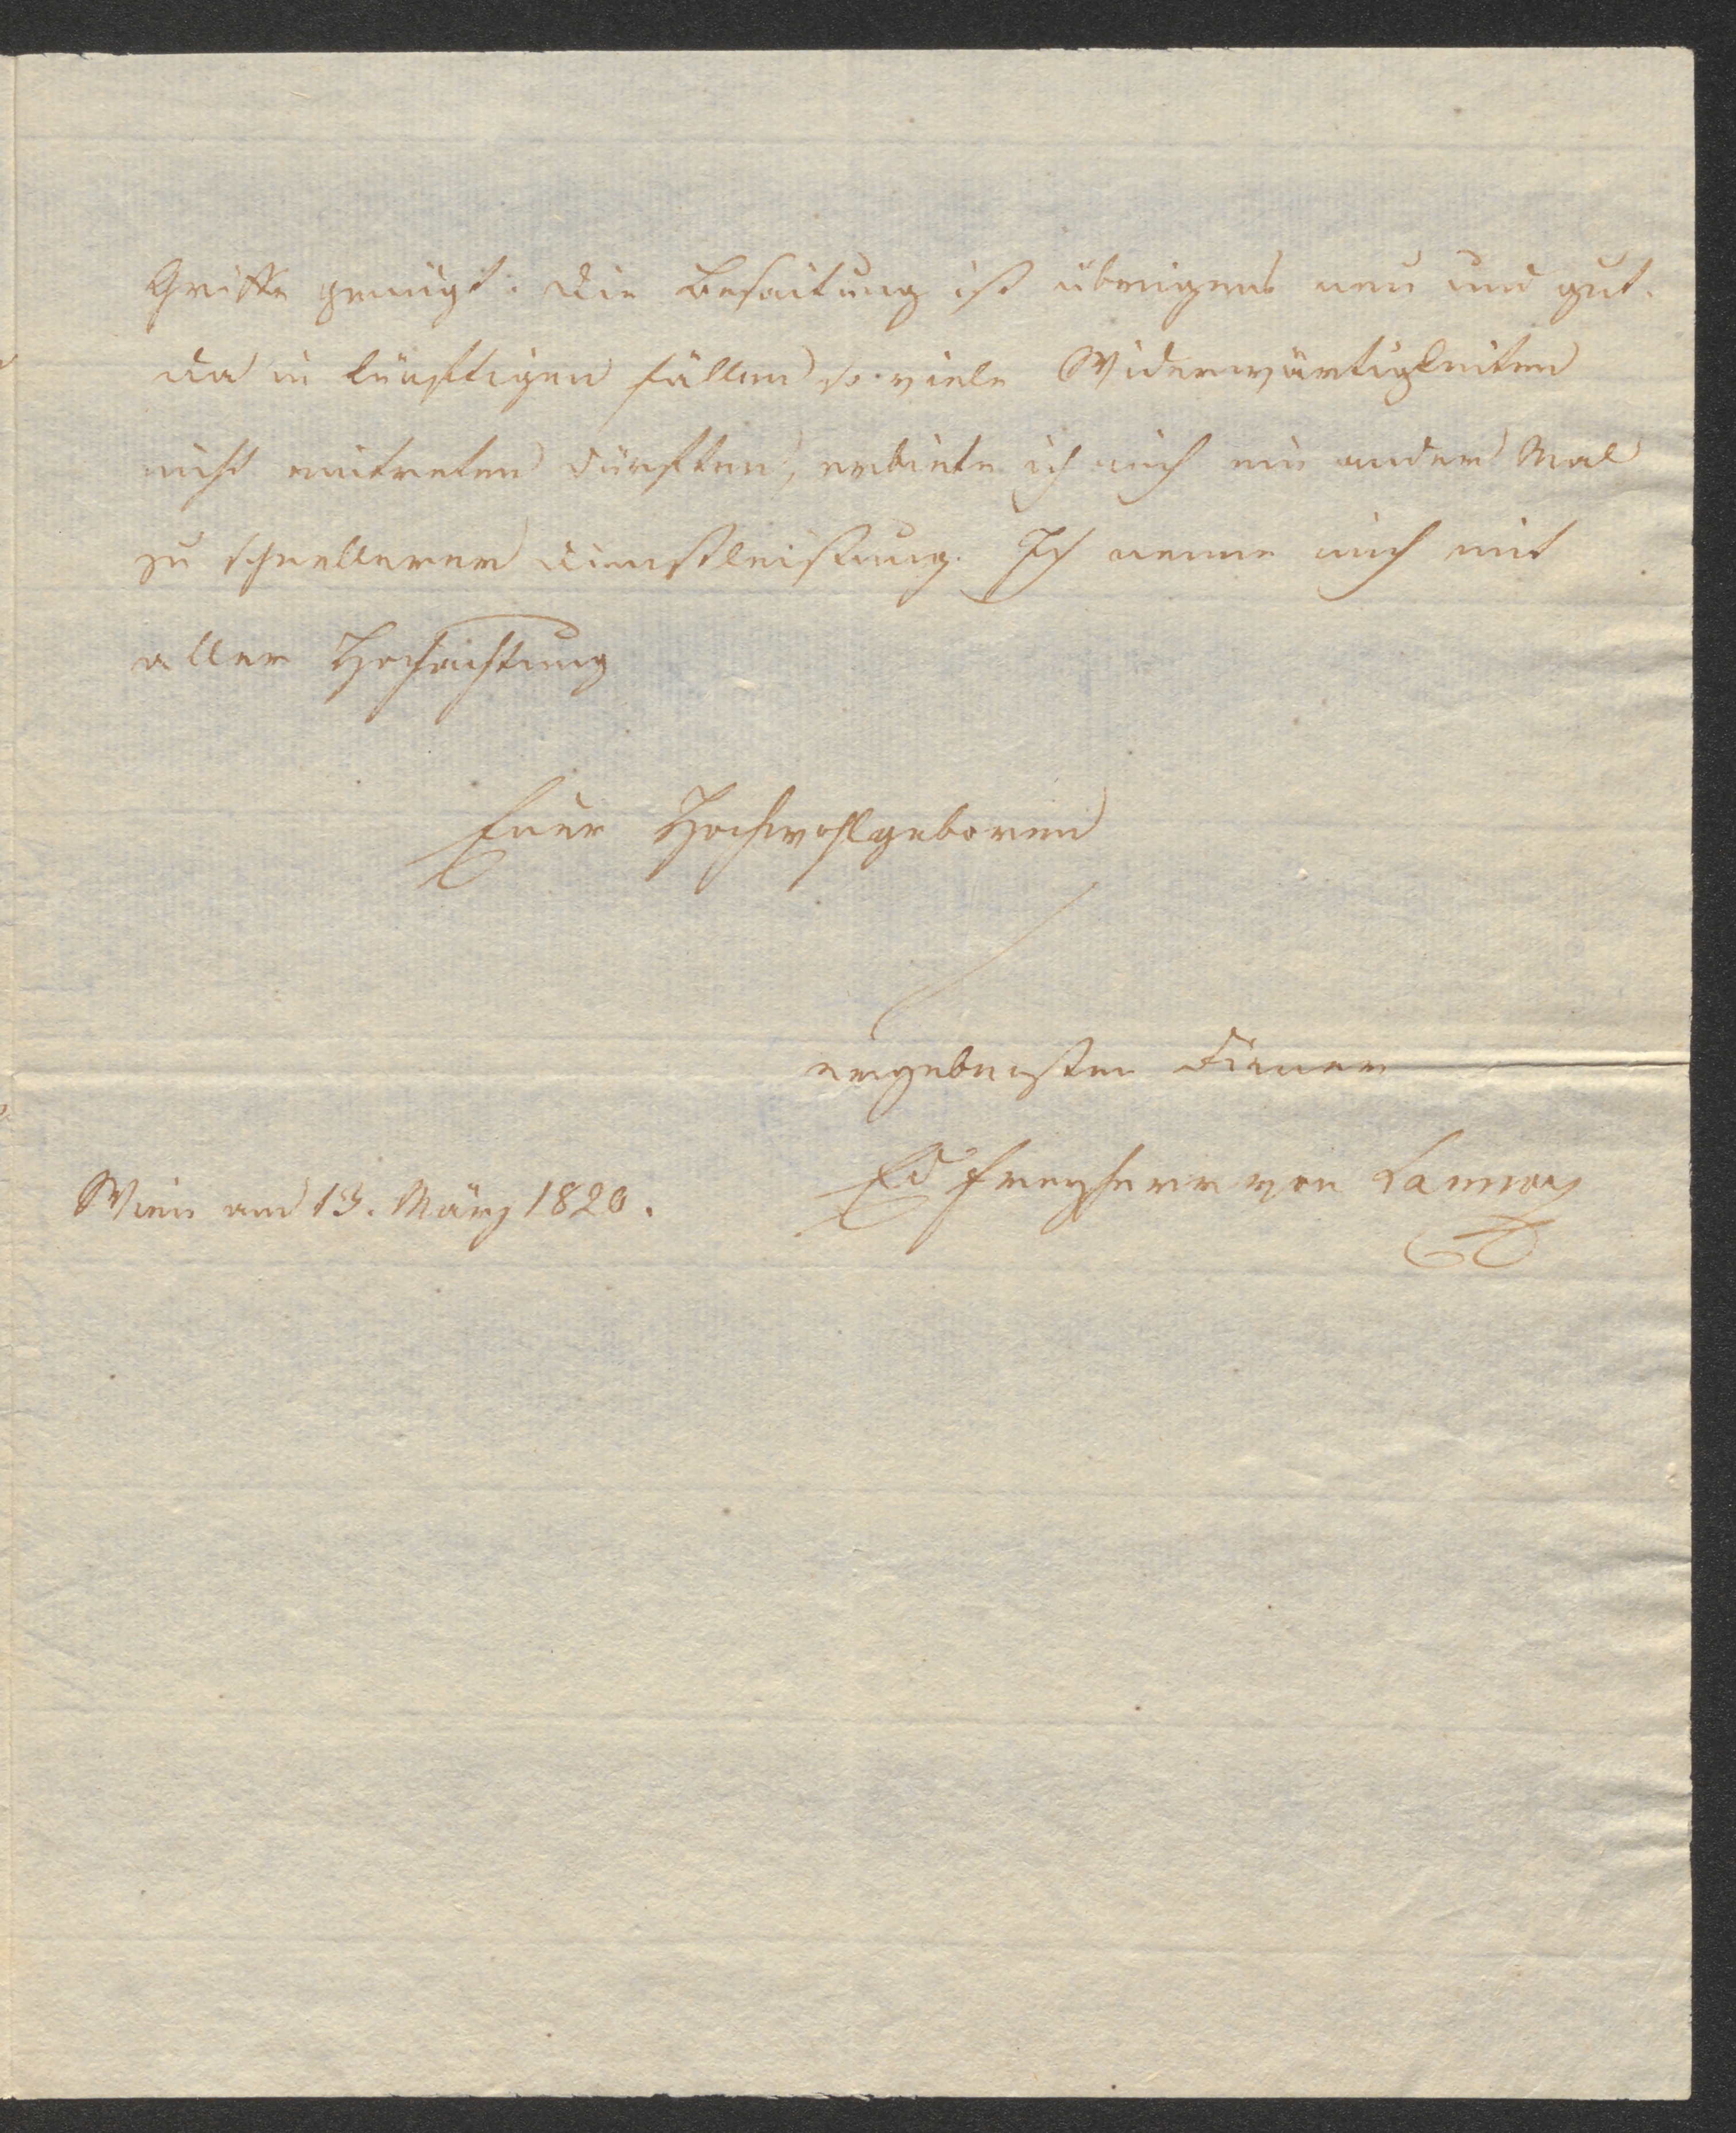 Griffe genügt. Die Besaitung ist übrigens neu und gut.
Da in künftigen Fällen so viele Widerwärtigkeiten
nicht eintreten dürften, erbiete ich mich ein ander Mal
zu schnellerer Dienstleistung. Ich nenne mich mit
aller Hochachtung
Euer Hochwohlgeboren
ergebenster Diener
Ed Freyherr von Lannoy
Wien am 13. März 1820.